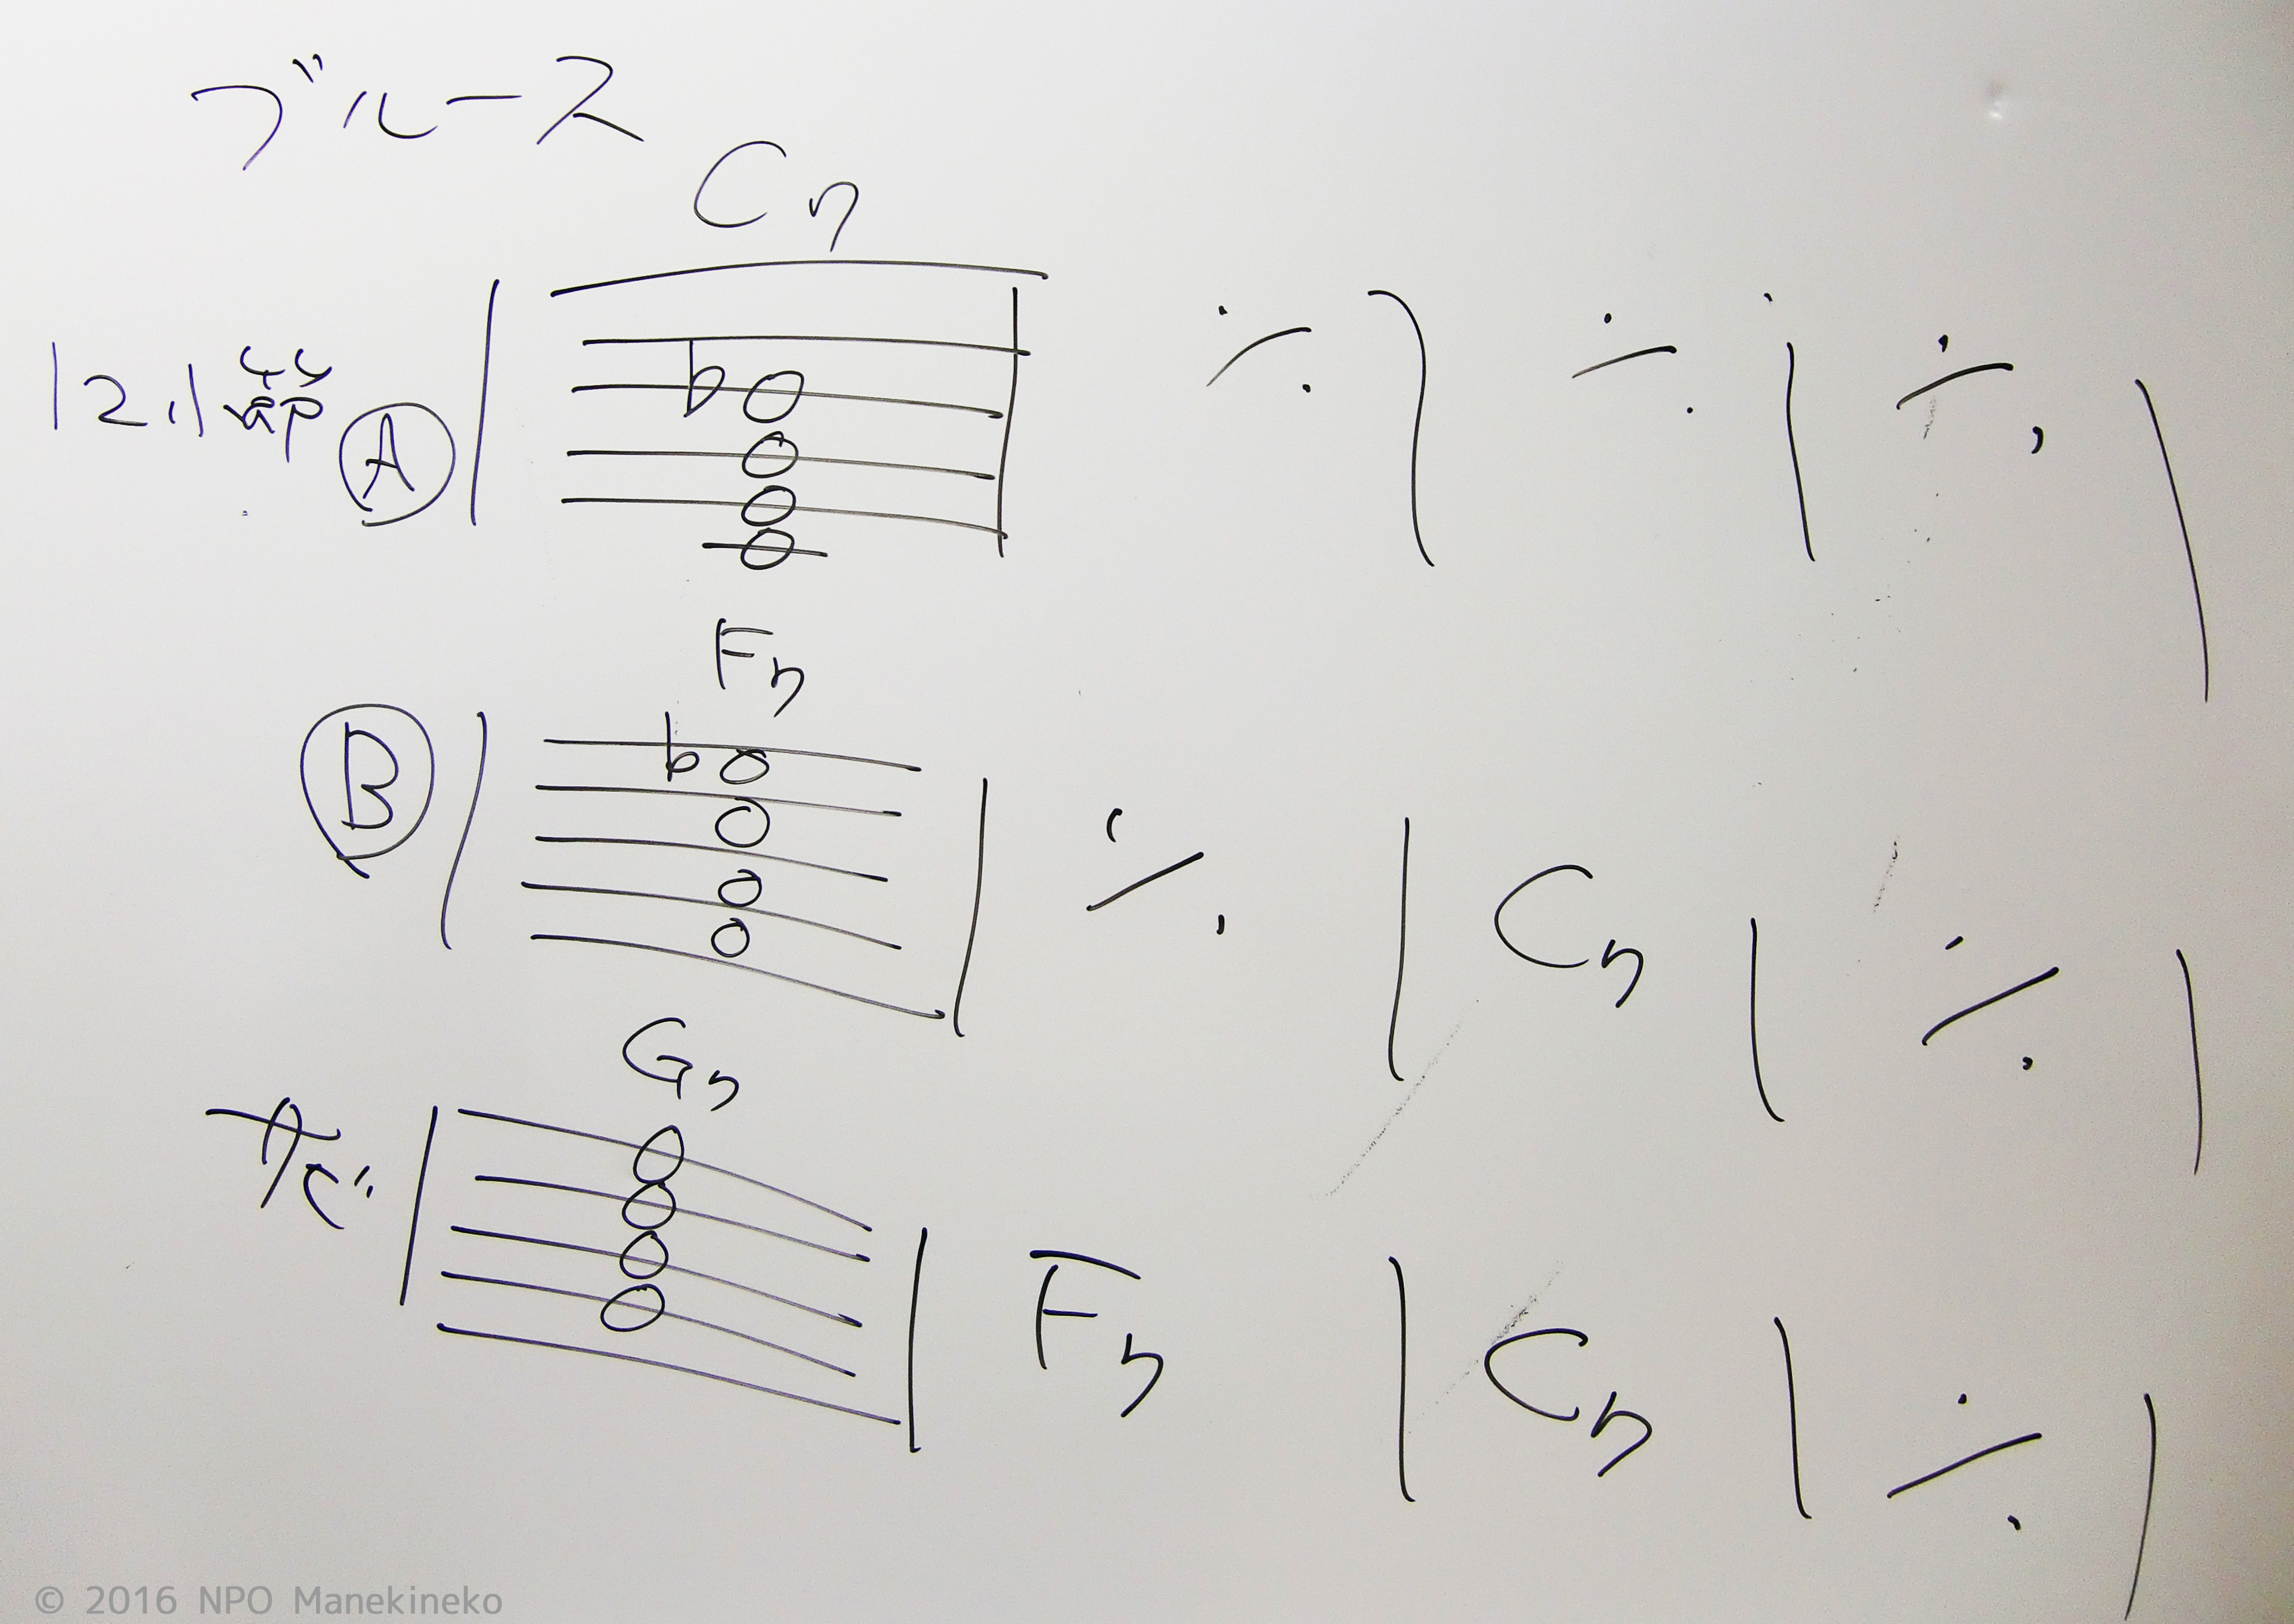 ブルース
C7
12小節 A ♭ ٪ ٪ ٪
F7
B ♭ ٪ C7 ٪
G7
F7 C7 ٪
© 2016 NPO Manekineko